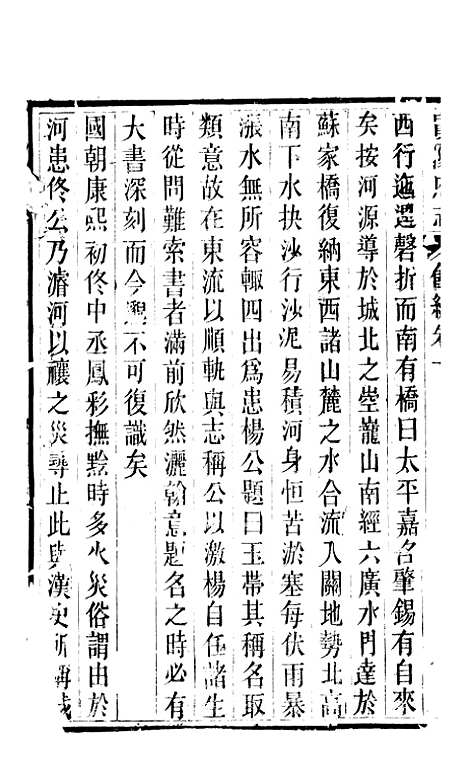 西行迤邐磬折而南有橋曰太平嘉名肇錫有自來
矣按河源導於城北之壟山南經六廣水門達於
蘇家橋復納東西諸山麓之水合流入關地勢北高
南下水抉沙行沙泥易積河身恒苦淤塞每伏雨暴
漲水無所容輙四出爲患楊公題曰玉帶其稱名取
類意故在東流以順軌與志稱公以激楊自任諸生
時從問難索書者滿前欣然灑翰意題名之時必有
大書深刻而今不可復識矣
國朝康熙初佟中丞鳳彩撫黔時多火災俗謂由於
河患佟公乃濬河以禳之災尋止此與漢史所稱